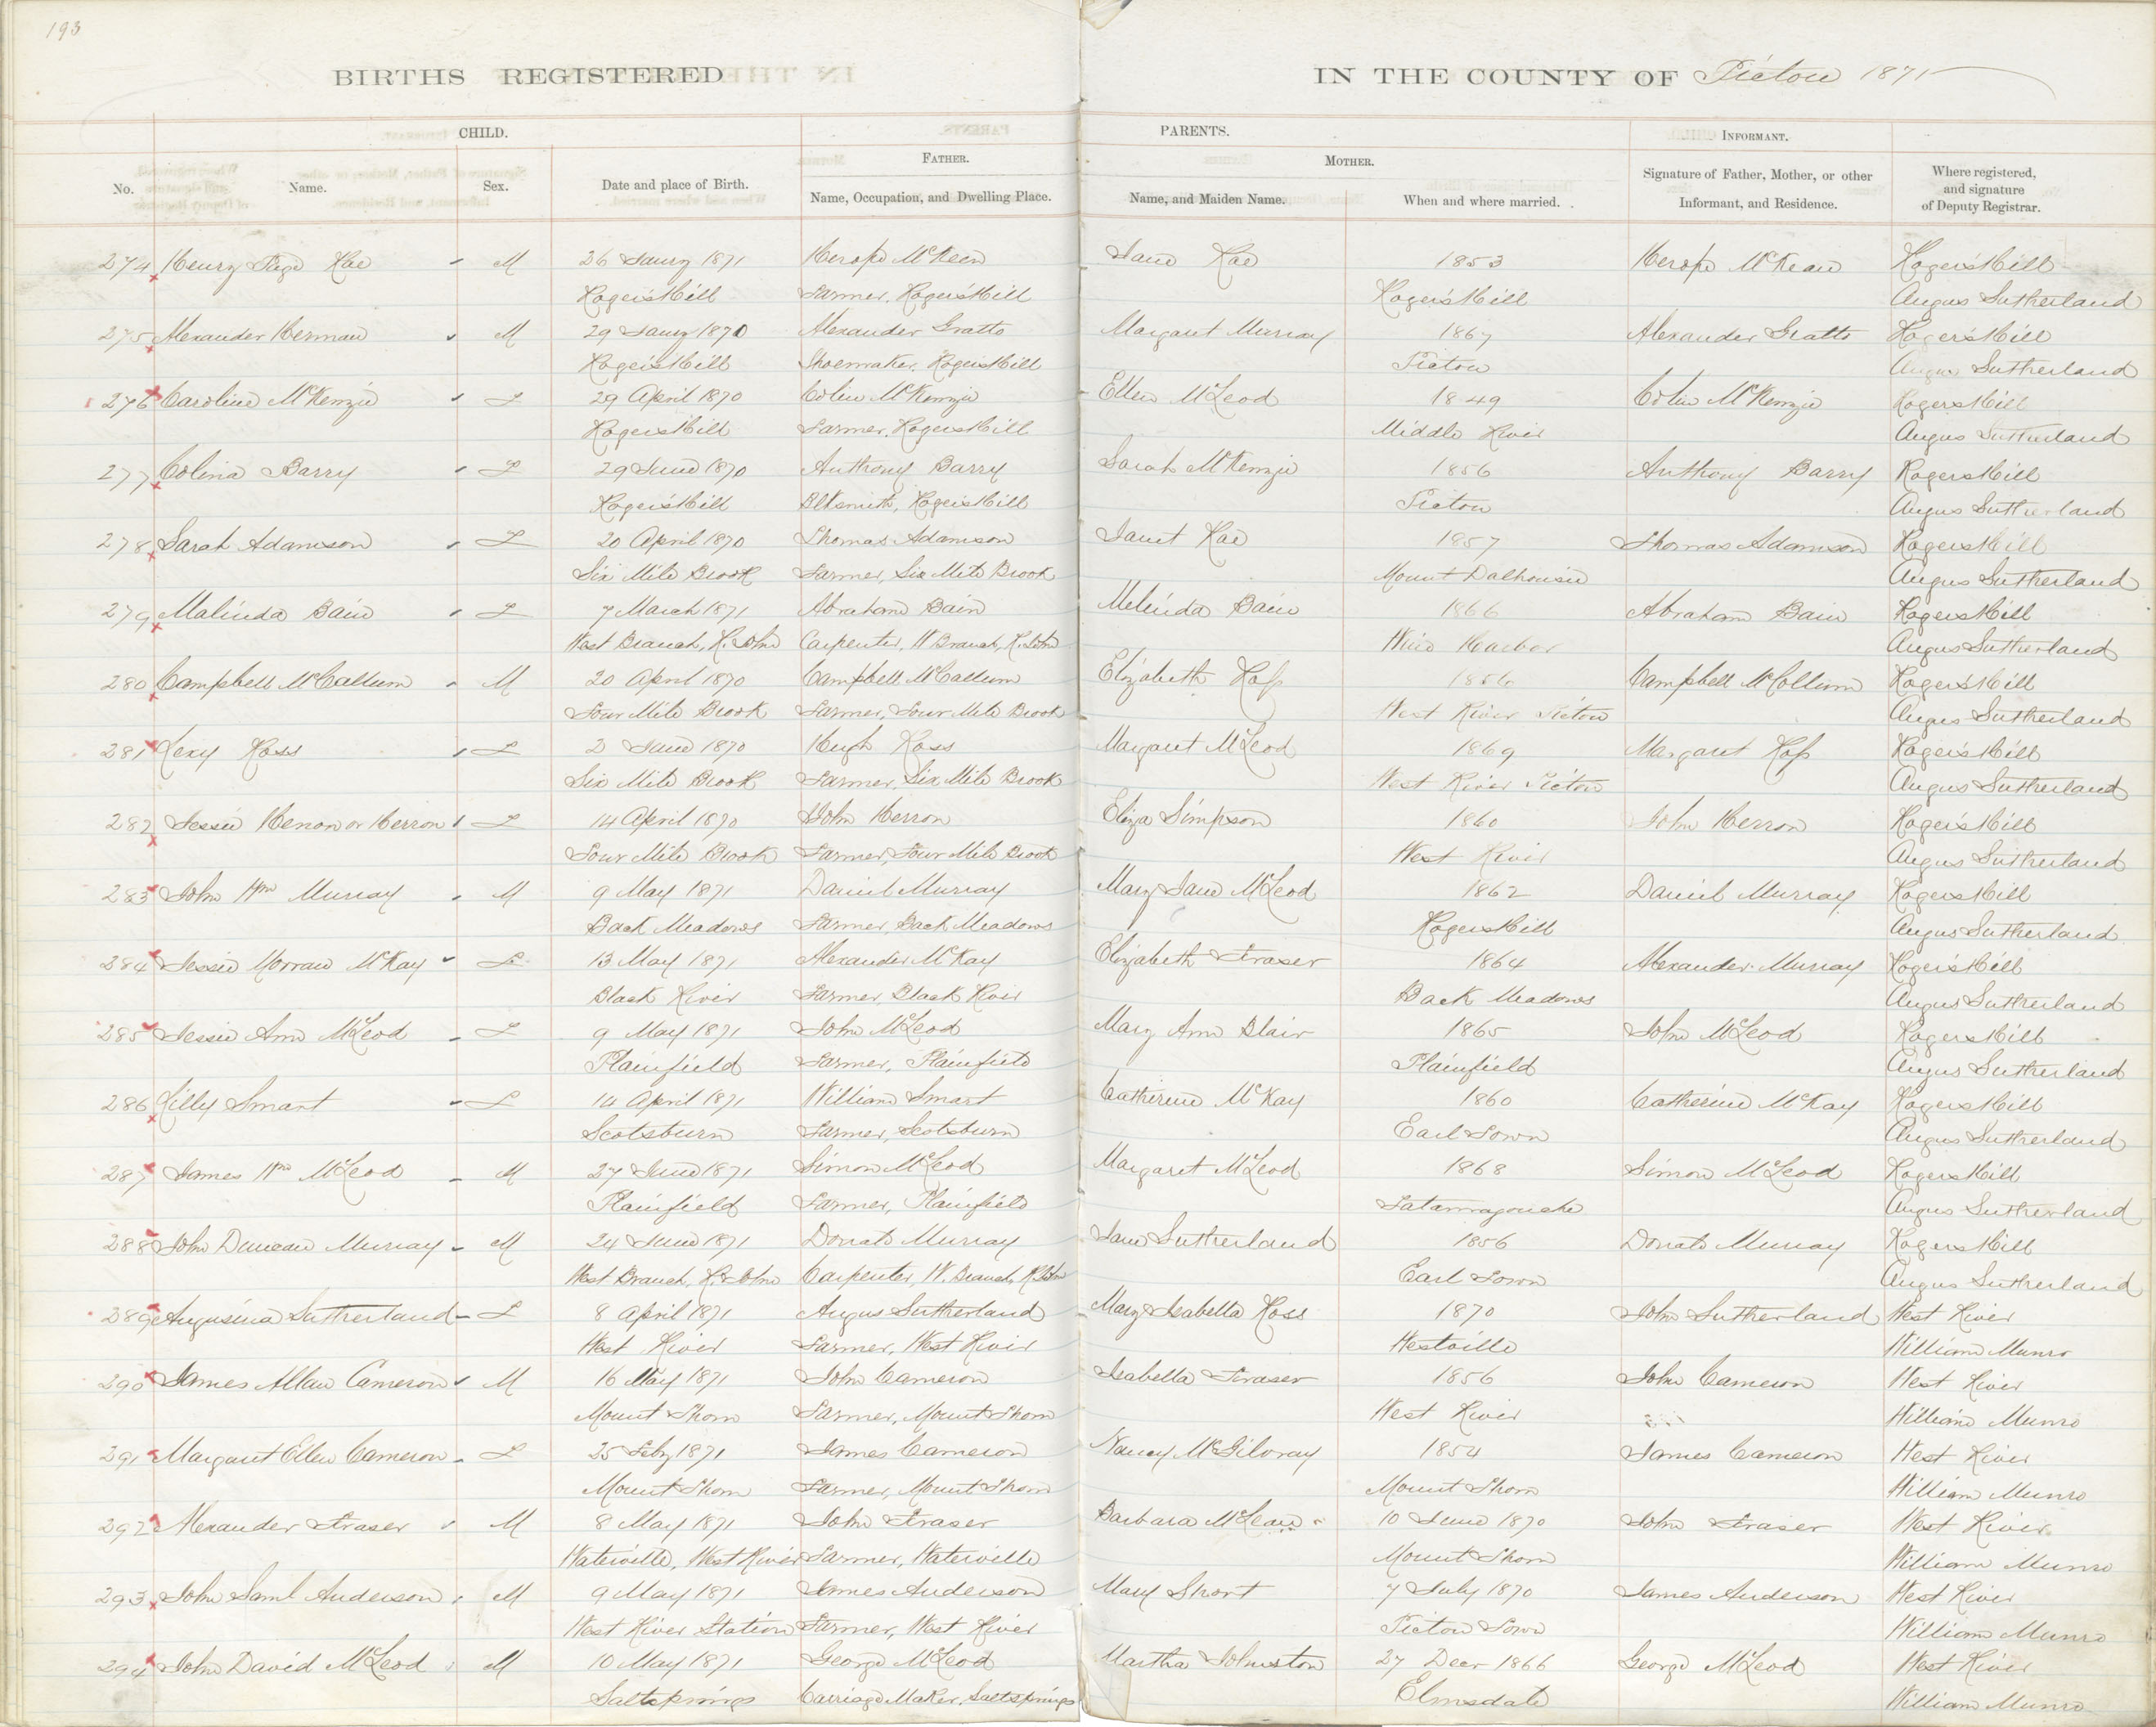 193
BIRTHS REGISTERED IN THE COUNTY OF Pictou 1871
CHILD. PARENTS. INFORMANT.
FATHER. MOTHER.
No. Name. Sex. Date and place of Birth. Name, Occupation, and Dwelling Place. Name, and Maiden Name. When and where married. Signature of Father, Mother, or other Informant, and Residence. Where registered, and signature of Deputy Registrar.
274 Henry Rae M 26 Jany 1871 McKeen Jane Rae 1853 McKean Rogers Hill
Rogers Hill Farmer, Rogers Hill Rogers Hill Angus Sutherland
275 Alexander Herman M 29 Jany 1870 Alexander Gratto Margaret Murray 1867 Alexander Gratto Rogers Hill
Rogers Hill Shoemaker, Rogers Hill Pictou Angus Sutherland
276 Caroline McKenzie F 29 April 1870 Colin McKenzie Ellen McLeod 1849 Colin McKenzie Rogers Hill
Rogers Hill Farmer, Rogers Hill Middle River Angus Sutherland
277 Colina Barry F 29 June 1870 Anthony Barry Sarah McKenzie 1856 Anthony Barry Rogers Hill
Rogers Hill Blksmith, Rogers Hill Pictou Angus Sutherland
278 Sarah Adamson F 20 April 1870 Thomas Adamson Janet Rae 1857 Thomas Adamson Rogers Hill
Six Mile Brook Farmer, Six Mile Brook Mount Dalhousie Angus Sutherland
279 Malinda Bain F 7 March 1871 Abraham Bain Melinda Bain 1866 Abraham Bain Rogers Hill
West Branch, R. John Carpenter, W Branch, R. John Wine Harbor Angus Sutherland
280 Campbell McCallum M 20 April 1870 Campbell McCallum Elizabeth Ross 1856 Campbell McCollum Rogers Hill
Four Mile Brook Farmer, Four Mile Brook West River Pictou Angus Sutherland
281 Lexy Ross F 2 June 1870 Hugh Ross Margaret McLeod 1869 Margaret Ross Rogers Hill
Six Mile Brook Farmer, Six Mile Brook West River Pictou Angus Sutherland
282 Jessie Henon or Herron F 14 April 1870 John Herron Eliza Simpson 1860 John Herron Rogers Hill
Four Mile Brook Farmer, Four Mile Brook West River Angus Sutherland
283 John Wm Murray M 9 May 1871 Daniel Murray Mary Jane McLeod 1862 Daniel Murray Rogers Hill
Back Meadows Farmer, Back Meadows Rogers Hill Angus Sutherland
284 Jessie Morraw McKay F 13 May 1871 Alexander McKay Elizabeth Fraser 1864 Alexander Murray Rogers Hill
Black River Farmer, Black River Back Meadows Angus Sutherland
285 Jessie Ann McLeod F 9 May 1871 John McLeod Mary Ann Blair 1865 John McLeod Rogers Hill
Plainfield Farmer, Plainfield Plainfield Angus Sutherland
286 Lilly Smart F 14 April 1871 William Smart Catherine McKay 1860 Catherine McKay Rogers Hill
Scotsburn Farmer, Scotsburn Earl Town Angus Sutherland
287 James Wm McLeod M 27 June 1871 Simon McLeod Margaret McLeod 1868 Simon McLeod Rogers Hill
Plainfield Farmer, Plainfield Tatamagouche Angus Sutherland
288 John Duncan Murray M 24 June 1871 Donald Murray Jane Sutherland 1856 Donald Murray Rogers Hill
West Branch, R. John Carpenter, W. Branch, R. John Earl Town Angus Sutherland
289 Angusina Sutherland F 8 April 1871 Angus Sutherland Mary Isabella Ross 1870 John Sutherland West River
West River Farmer, West River Westville William Munro
290 James Allan Cameron M 16 May 1871 John Cameron Isabella Fraser 1856 John Cameron West River
Mount Thom Farmer, Mount Thom West River William Munro
291 Margaret Ellen Cameron F 25 Feby 1871 James Cameron Nancy McGilvray 1854 James Cameron West River
Mount Thom Farmer, Mount Thom Mount Thom William Munro
292 Alexander Fraser M 8 May 1871 John Fraser Barbara McLean 10 June 1870 John Fraser West River
Waterville, West River Farmer, Waterville Mount Thom William Munro
293 John Saml Anderson M 9 May 1871 James Anderson Mary Short 7 July 1870 James Anderson West River
West River Station Farmer, West River Pictou Town William Munro
294 John David McLeod M 10 May 1871 George McLeod Martha Johnston 27 Decr 1866 George McLeod West River
Saltsprings Carriage Maker, Saltsprings Elmsdale William Munro